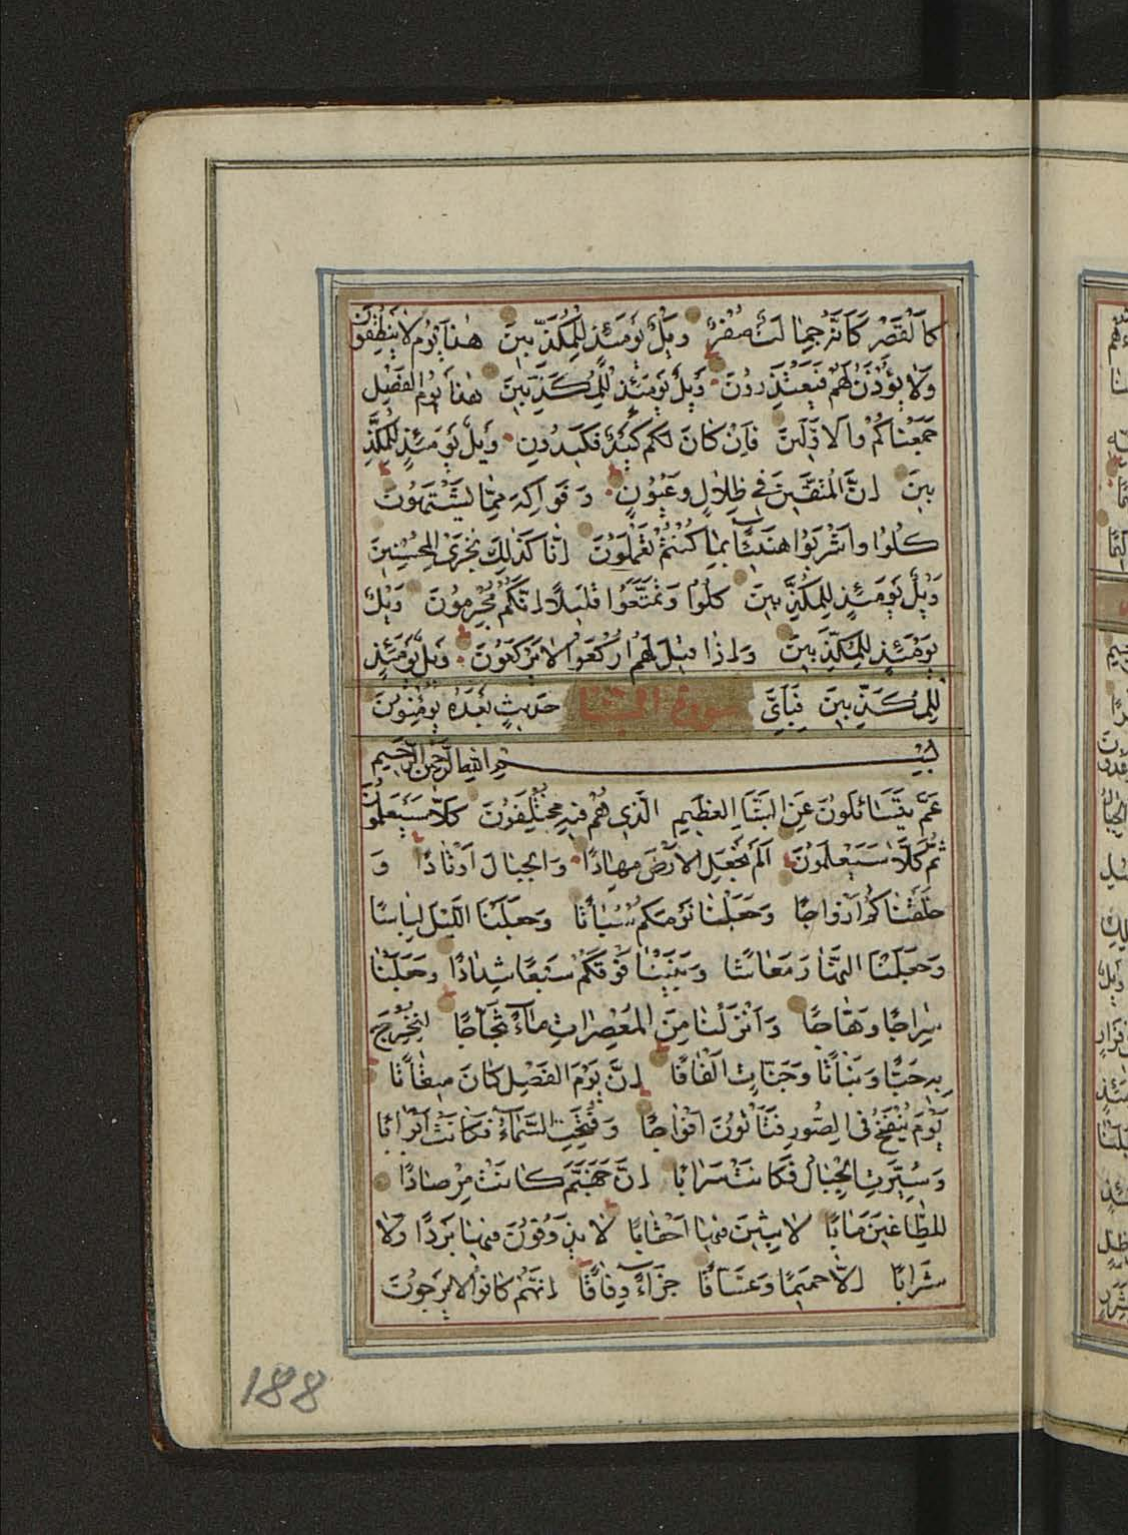 كَالْقَصْرِ كَاَنَّهُ جِمَالَتٌ صُفْرٌ وَيْلٌ يَوْمَئِذٍ لِلْمُكَذِّبِينَ هٰذَا يَوْمُ لَا يَنْطِقُونَ
وَلَا يُؤْذَنُ لَهُمْ فَيَعْتَذِرُونَ وَيْلٌ يَوْمَئِذٍ لِلْمُكَذِّبِينَ هٰذَا يَوْمُ الْفَصْلِ
جَمَعْنَاكُمْ وَالْاَوَّلِينَ فَاِنْ كَانَ لَكُمْ كَيْدٌ فَكِيدُونِ وَيْلٌ يَوْمَئِذٍ لِلْمُكَذِّ
بِينَ اِنَّ الْمُتَّقِينَ فِي ظِلَالٍ وَعُيُونٍ وَفَوَاكِهَ مِمَّا يَشْتَهُونَ
كُلُوا وَاشْرَبُوا هَنِيئًا بِمَا كُنْتُمْ تَعْمَلُونَ اِنَّا كَذٰلِكَ نَجْزِي الْمُحْسِنِينَ
وَيْلٌ يَوْمَئِذٍ لِلْمُكَذِّبِينَ كُلُوا وَتَمَتَّعُوا قَلِيلًا اِنَّكُمْ مُجْرِمُونَ وَيْلٌ
يَوْمَئِذٍ لِلْمُكَذِّبِينَ وَاِذَا قِيلَ لَهُمُ ارْكَعُوا لَا يَرْكَعُونَ وَيْلٌ يَوْمَئِذٍ
لِلْمُكَذِّبِينَ فَبِاَيِّ سورة النبا حَدِيثٍ بَعْدَهُ يُؤْمِنُونَ
بِسْمِ اللهِ الرَّحْمٰنِ الرَّحِيمِ
عَمَّ يَتَسَائَلُونَ عَنِ النَّبَاِ الْعَظِيمِ الَّذِي هُمْ فِيهِ مُخْتَلِفُونَ كَلَّا سَيَعْلَمُونَ
ثُمَّ كَلَّا سَيَعْلَمُونَ اَلَمْ نَجْعَلِ الْاَرْضَ مِهَادًا وَالْجِبَالَ اَوْتَادًا وَ
خَلَقْنَاكُمْ اَزْوَاجًا وَجَعَلْنَا نَوْمَكُمْ سُبَاتًا وَجَعَلْنَا اللَّيْلَ لِبَاسًا
وَجَعَلْنَا النَّهَارَ مَعَاشًا وَبَنَيْنَا فَوْقَكُمْ سَبْعًا شِدَادًا وَجَعَلْنَا
سِرَاجًا وَهَّاجًا وَاَنْزَلْنَا مِنَ الْمُعْصِرَاتِ مَاءً ثَجَّاجًا لِنُخْرِجَ
بِهِ حَبًّا وَنَبَاتًا وَجَنَّاتٍ اَلْفَافًا اِنَّ يَوْمَ الْفَصْلِ كَانَ مِيقَاتًا
يَوْمَ يُنْفَخُ فِي الصُّورِ فَتَأْتُونَ اَفْوَاجًا وَفُتِحَتِ السَّمَاءُ فَكَانَتْ اَبْوَابًا
وَسُيِّرَتِ الْجِبَالُ فَكَانَتْ سَرَابًا اِنَّ جَهَنَّمَ كَانَتْ مِرْصَادًا
لِلطَّاغِينَ مَاٰبًا لَابِثِينَ فِيهَا اَحْقَابًا لَا يَذُوقُونَ فِيهَا بَرْدًا وَلَا
شَرَابًا اِلَّا حَمِيمًا وَغَسَّاقًا جَزَاءً وِفَاقًا اِنَّهُمْ كَانُوا لَا يَرْجُونَ
188